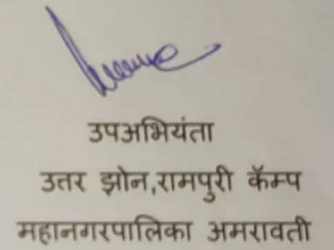 उपअभियंता
उत्तर झोन,रामपुरी कॅम्प
महानगरपालिका अमरावती